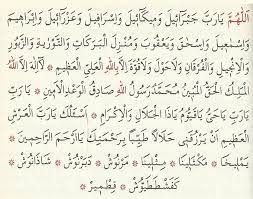 اَللّٰهُمَّ يَارَبَّ جَبْرَآئِيلَ وَمِيكَآئِيلَ وَاِسْرَافِيلَ وَعَزْرَآئِيلَ وَاِبْرَاهِيمَ
وَاِسْمٰعِيلَ وَاِسْحٰقَ وَيَعْقُوبَ وَمُنْزِلَ الْبَرَكَاتِ وَالتَّوْرٰيةِ وَالزَّبُورِ
وَالْاِنْجِيلِ وَالْفُرْقَانِ وَلَاحَوْلَ وَلَاقُوَّةَ اِلَّا بِاللّٰهِ الْعَلِيِّ الْعَظِيمِ * لَآاِلٰهَ اِلَّا اللّٰهُ
الْمَلِكُ الْحَقُّ الْمُبِينُ مُحَمَّدٌ رَسُولُ اللّٰهِ صَادِقُ الْوَعْدِ الْاَمِينُ * يَارَبِّ
يَارَبِّ يَاحَيُّ يَاقَيُّومُ يَاذَا الْجَلَالِ وَالْاِكْرَامِ * اَسْئَلُكَ يَارَبَّ الْعَرْشِ
الْعَظِيمِ اَنْ يَرْزُقَنِي حَلَالًا طَيِّبًا بِرَحْمَتِكَ يَآاَرْحَمَ الرَّاحِمِينَ *
يَمْلِيخَا * مَكْثَلِينَا * مِثْلِينَا * مَرْنُوشْ * دَبَرْنُوشْ * شَاذَنُوشْ *
كَفَشْطَطَيُوشْ * قِطْمِيرْ *